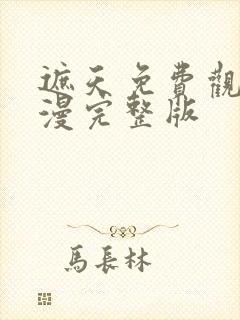 遮天免費觀
漫完整版
馬長林